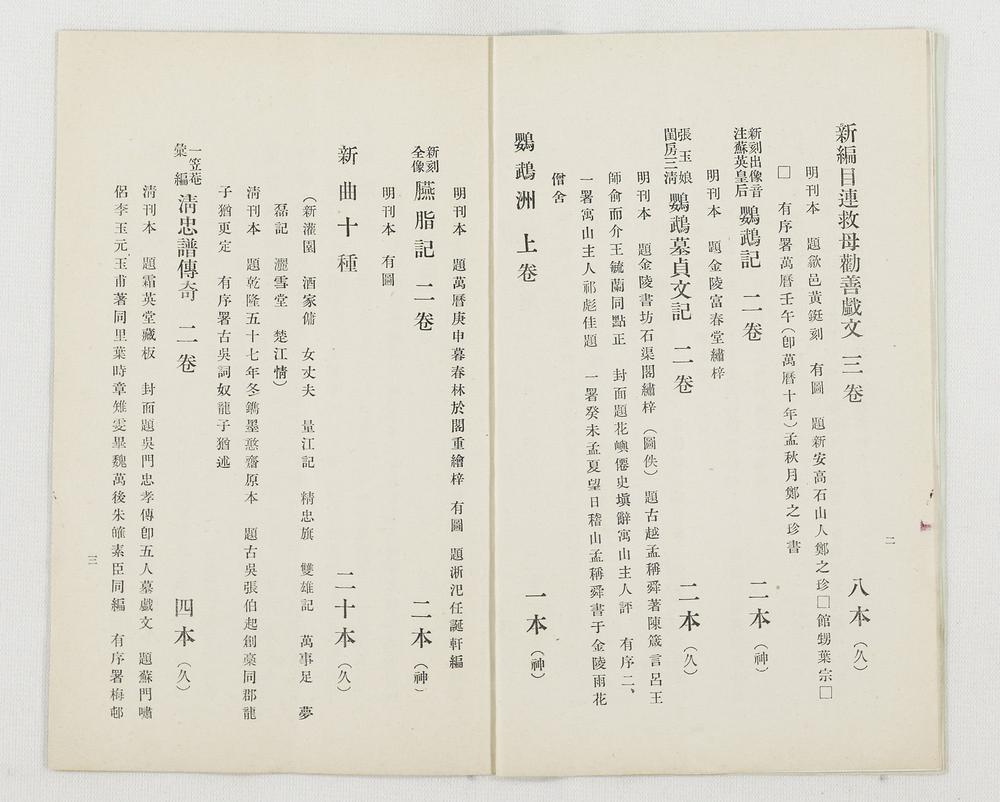 新編目連救母勸善戯文 三卷 八本（久）
明刊本 題歙邑黃鋌刻 有圖 題新安高石山人鄭之珍□館甥葉宗□
□ 有序署萬曆壬午（卽萬曆十年）孟秋月鄭之珍書
新刻出像音註蘇英皇后 鸚鵡記 二卷 二本（神）
明刊本 題金陵富春堂繡梓
張玉娘閨房三淸 鸚鵡墓貞文記 二卷 二本（久）
明刊本 題金陵書坊石渠閣繡梓（圖佚）題古越孟稱舜著陳箴言呂王
師俞而介王毓蘭同點正 封面題花嶼僊史塡辭寓山主人評 有序二、
一署寓山主人祁彪佳題 一署癸未孟夏望日稽山孟稱舜書于金陵雨花
僧舍
鸚鵡洲 上卷 一本（神）
二
明刊本 題萬曆庚申暮春林於閣重繪梓 有圖 題浙汜任誕軒編
新刻全像 臙脂記 二卷 二本（神）
明刊本 有圖
新曲十種 二十本（久）
（新灌園 酒家傭 女丈夫 量江記 精忠旗 雙雄記 萬事足 夢
磊記 灑雪堂 楚江情）
淸刊本 題乾隆五十七年冬鐫墨憨齋原本 題古吳張伯起創稾同郡龍
子猶更定 有序署古吳詞奴龍子猶述
一笠菴彙編 淸忠譜傳奇 二卷 四本（久）
淸刊本 題霜英堂藏板 封面題吳門忠孝傳卽五人墓戯文 題蘇門嘯
侶李玉元玉甫著同里葉時章雉斐畢魏萬後朱㿥素臣同編 有序署梅邨
三